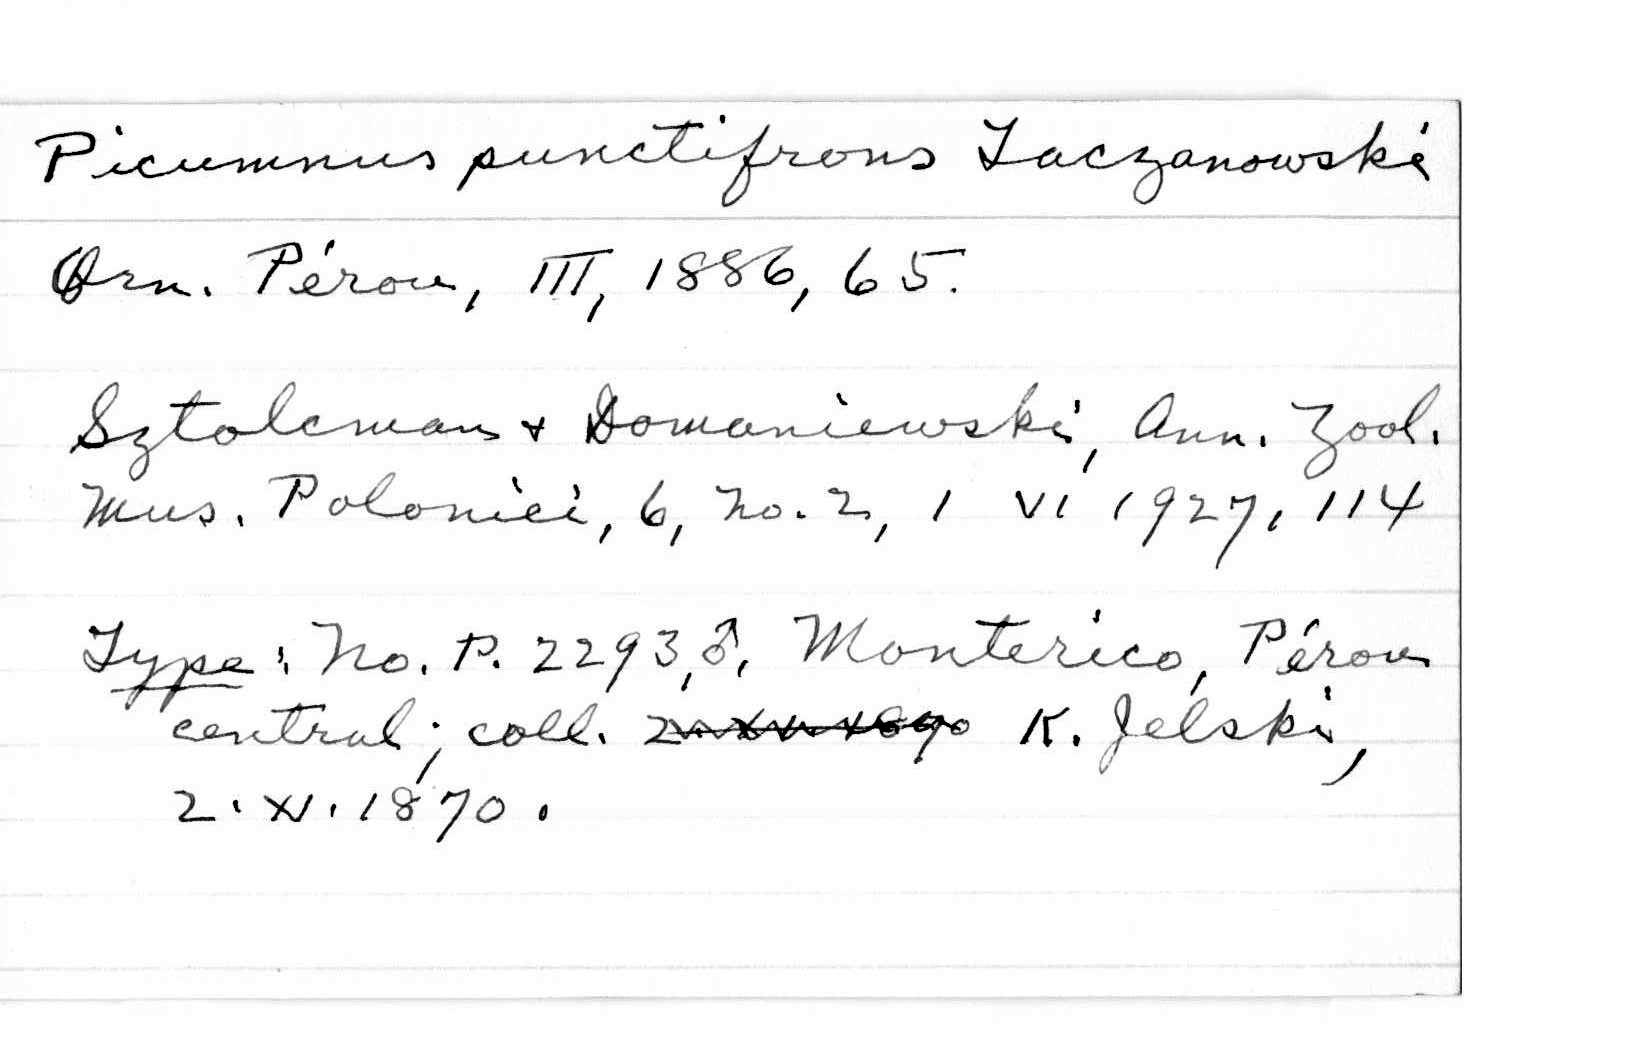 Picumnus punctifrons Taczanowski
Orn. Pérou, III, 1886, 65.
Sztolcman & Domaniewski, Ann. Zool.
Mus. Polonici, 6, No. 2, 1 VI 1927, 114
Type: No. P. 2293, ♂, Monterico, Pérou
central; coll. K. Jelski,
2.XI.1870.